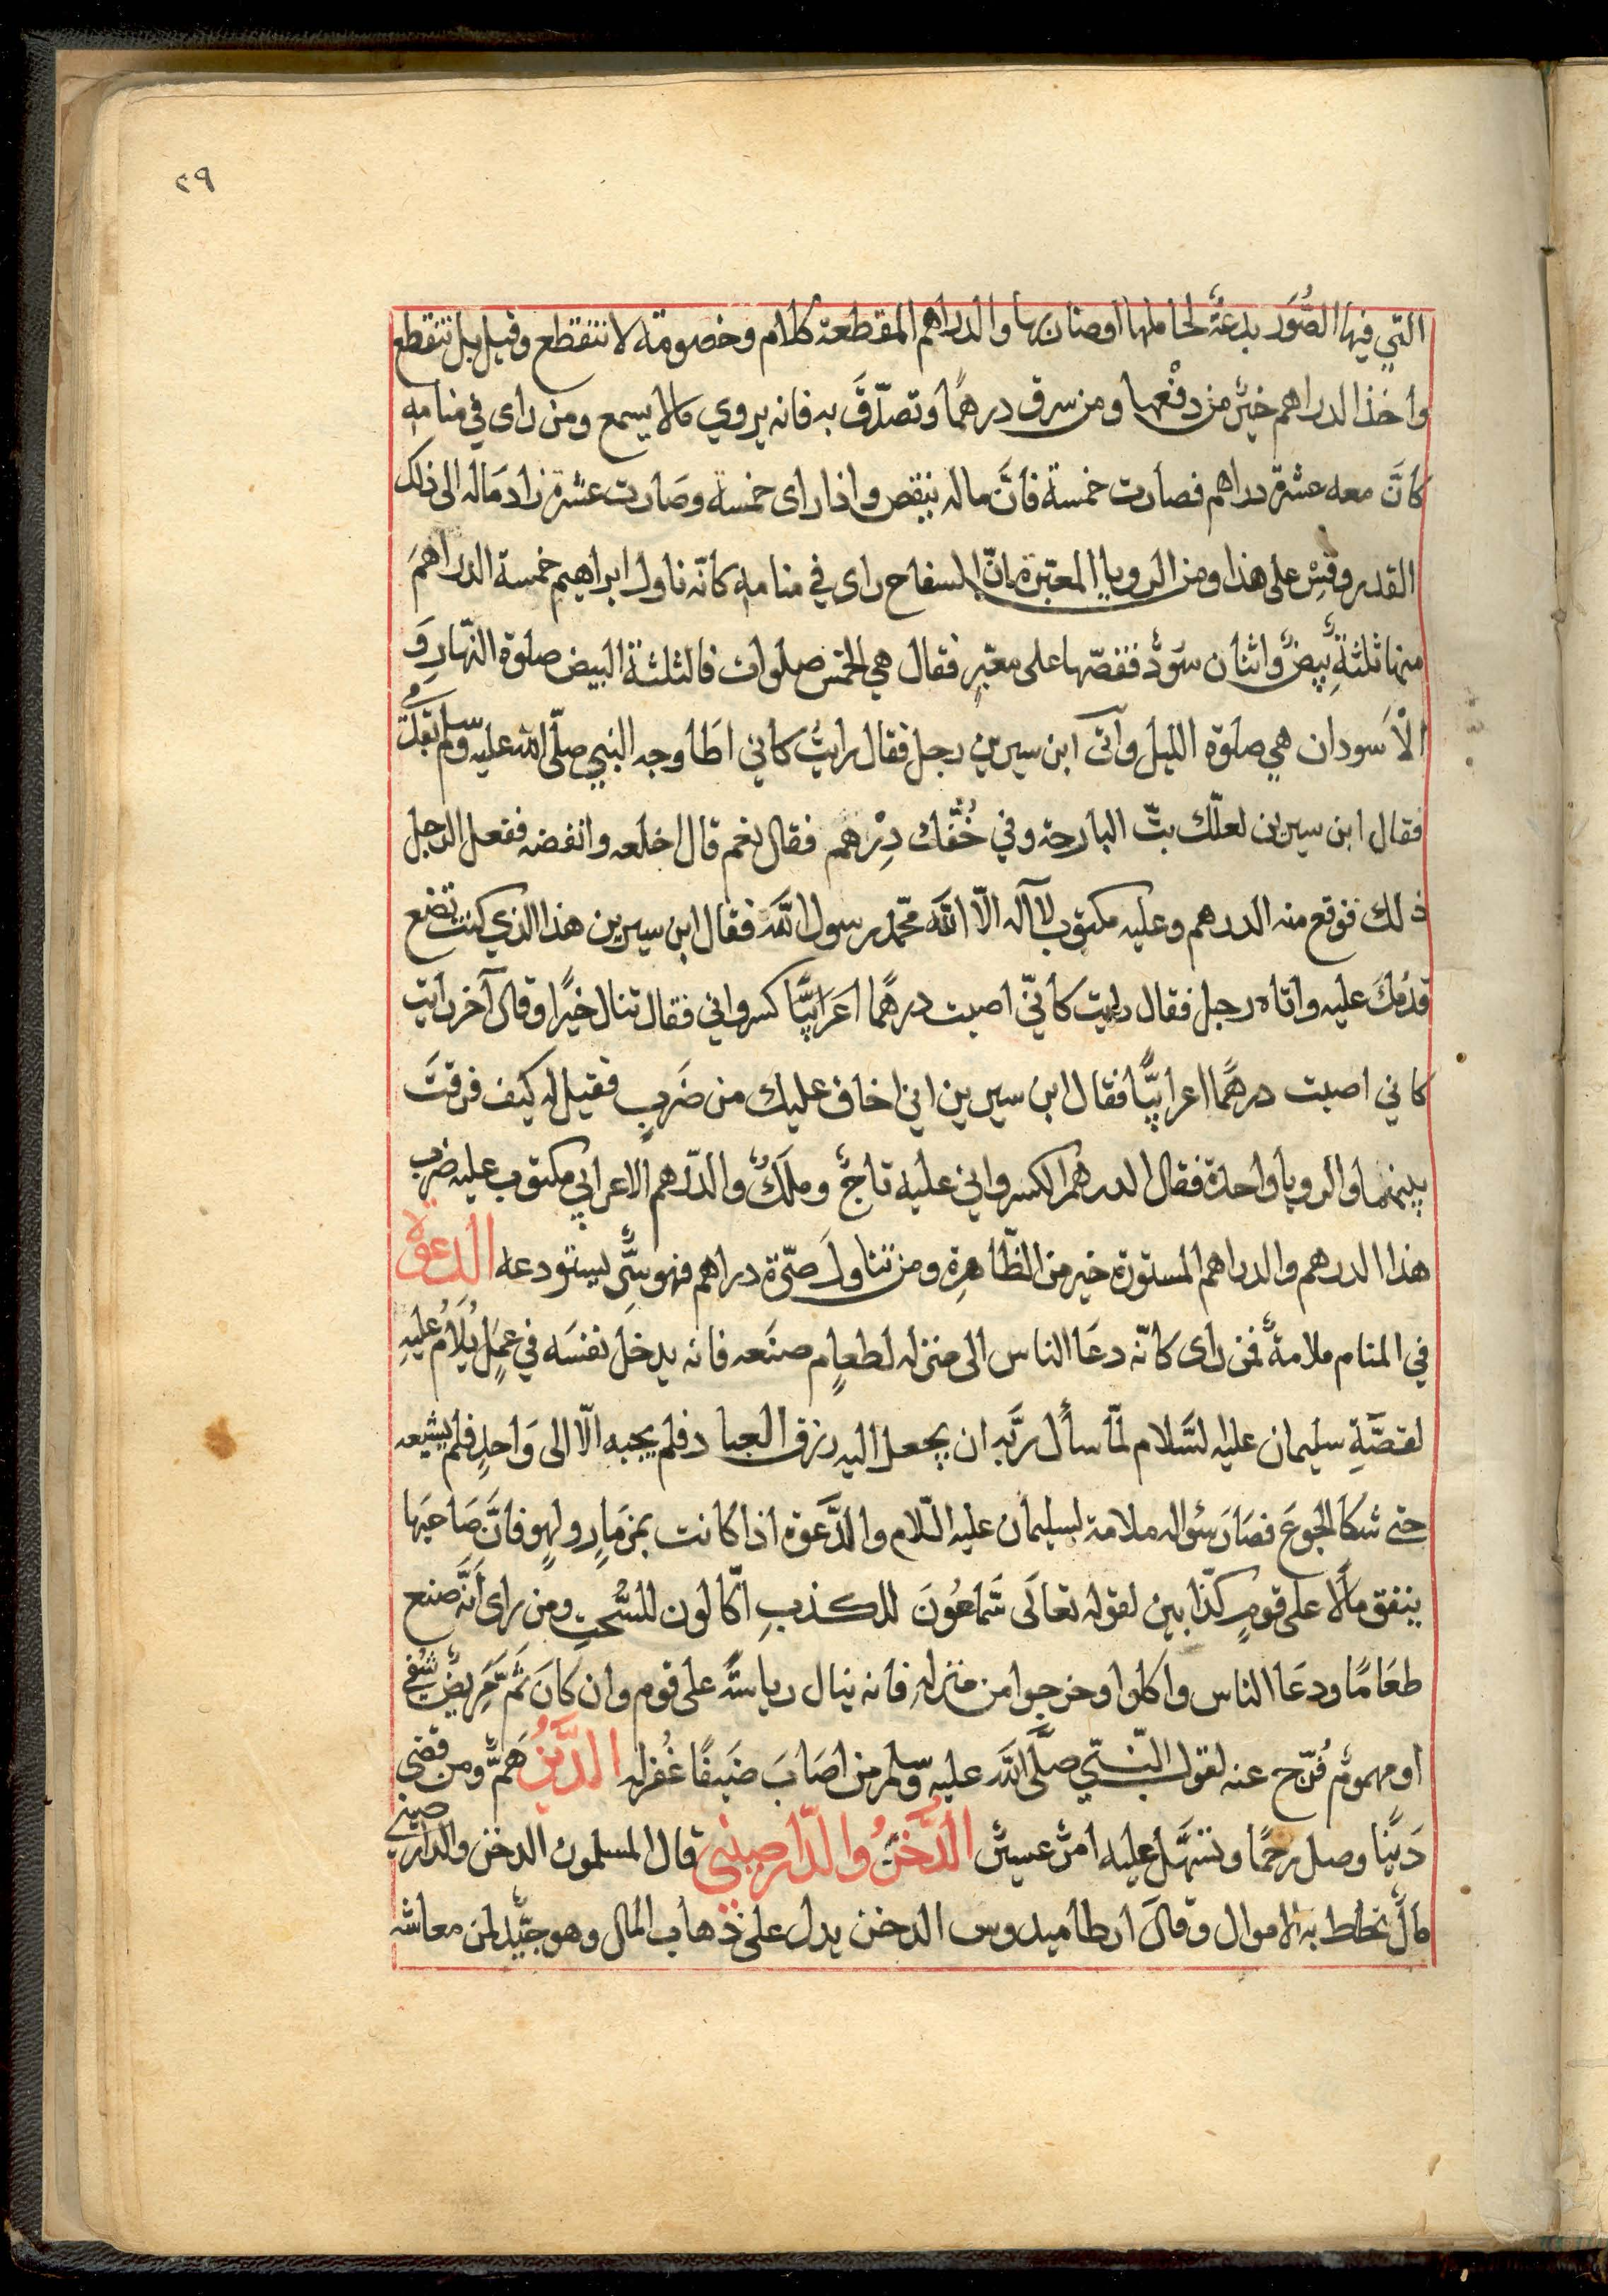 ٢٩
التي فيها الصُّوَر بدعةٌ لحاملها او ضاربها والدراهم المقطعة كلام وخصومة لا تنقطع وقيل بل تنقطع
واخذ الدراهم خيرٌ من دفعها ومن سرق درهمًا وتصدّق به فانه يروي مالا يسمع ومن راى في منامه
كانّ معه عشرة دراهم فصارت خمسة فانَّ ماله ينقص واذا راى خمسة وصارت عشرة زاد ماله الى ذلك
القدر وقِسْ على هذا ومن الرويا المعتبرة انّ السفاح راى في منامه كانّه ناول ابراهيم خمسة الدراهم
منها ثلثةٌ بيضٌ واثنان سَودٌ فقصّها على معتبرٍ فقال هي الخمس صلوات فالثلثة البيض صلوة النّهار وَ
الْاَسودان هي صلوة الليل وآتى ابن سيرين رجل فقال رايتُ كاني اطَا وجه النبي صلّى الله عليه وسلم بقدمي
فقال ابن سيرين لعلّك بتّ البارحة وفي خُفّك دِرْهم فقال نعم قال اخلعه وانفضه ففعل الرجل
ذلك فوقع منه الدرهم وعليه مكتوب لا آله الّا الله محمّد رسول الله فقال ابن سيرين هذا الذي كنت تضع
قدمَك عليه واتاه رجل فقال رايت كانّي اصبت درهمًا اعرَابيًّا كسرواني فقال تنال خيرًا وقال آخر رايت
كاني اصبت درهمًا اعرابيًّا فقال ابن سيرين اني اخاف عليك من ضَربٍ فقيل له كيف فرقتَ
بينهما والرويا واحدة فقال الدرهم الكسرواني عليه تاجٌ وملَكٌ والدّرهم الاعرابي مكتوب عليه ضُرِب
هذا الدرهم والدراهم المستورة خير من الظّاهرة ومن تناولَ صرّة دراهم فهو سرّ يستودعه الدعوة
في المنام ملامةٌ فمن راى كانّه دعَا الناس الى منزله لطعامٍ صنَعه فانه يدخل نفسَه في عمَلٍ يُلَامُ عليهِ
لقصَّةِ سليمان عليه لسَّلام لمّا سأل ربَّه ان يجعل اليه رزق العباد فلم يجبه الّا الى وَاحدٍ فلم يشبعه
حتى شكَا الجوعَ فصَارَ سُواله ملامة لسليمان عليه السّلام والدَّعوة اذا كانت بمزمَارٍ ولهوٍ فانَّ صَاحبَها
ينفق مالًا على قومٍ كذّابين لقوله تعالَى سَمّاعُونَ للكذبِ اكّالون للسُّحتِ ومن راى اَنَّه صنع
طعَامًا ودعَا الناس واكلوا وخرجوا من منزلهِ فانه ينال رياسَةً على قوم وان كَانَ ثَمَّ مَريضٌ شُفي
او مهمومٌ فُرّج عنه لقول النّبيّ صلَّى اللّه عليه وسلم من اصَابَ ضَيفًا غُفِر له الدَّينُ هَمٌّ ومن قضى
دَينًا وصل رحمًا وتسهَّل عليه امرٌ عسيرٌ الدَّخنُ والدّارصيني قال المسلمون الدخن والدّارصيني
مالٌ تخلط به الاموال وقالَ ارطاميدوس الدخن يدل على ذهاب المال وهو جيّد لمن معاشه